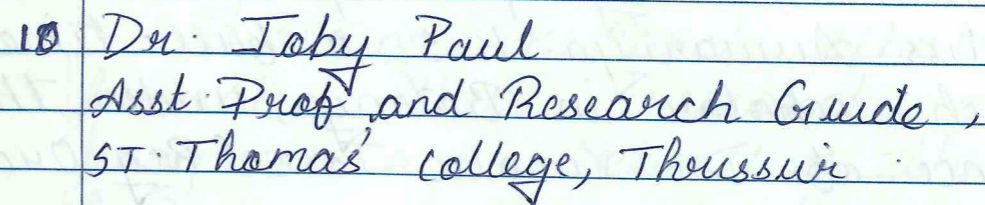 10 Dr. Joby Paul
Asst. Prof and Research Guide,
ST. Thomas' College, Thrussur.